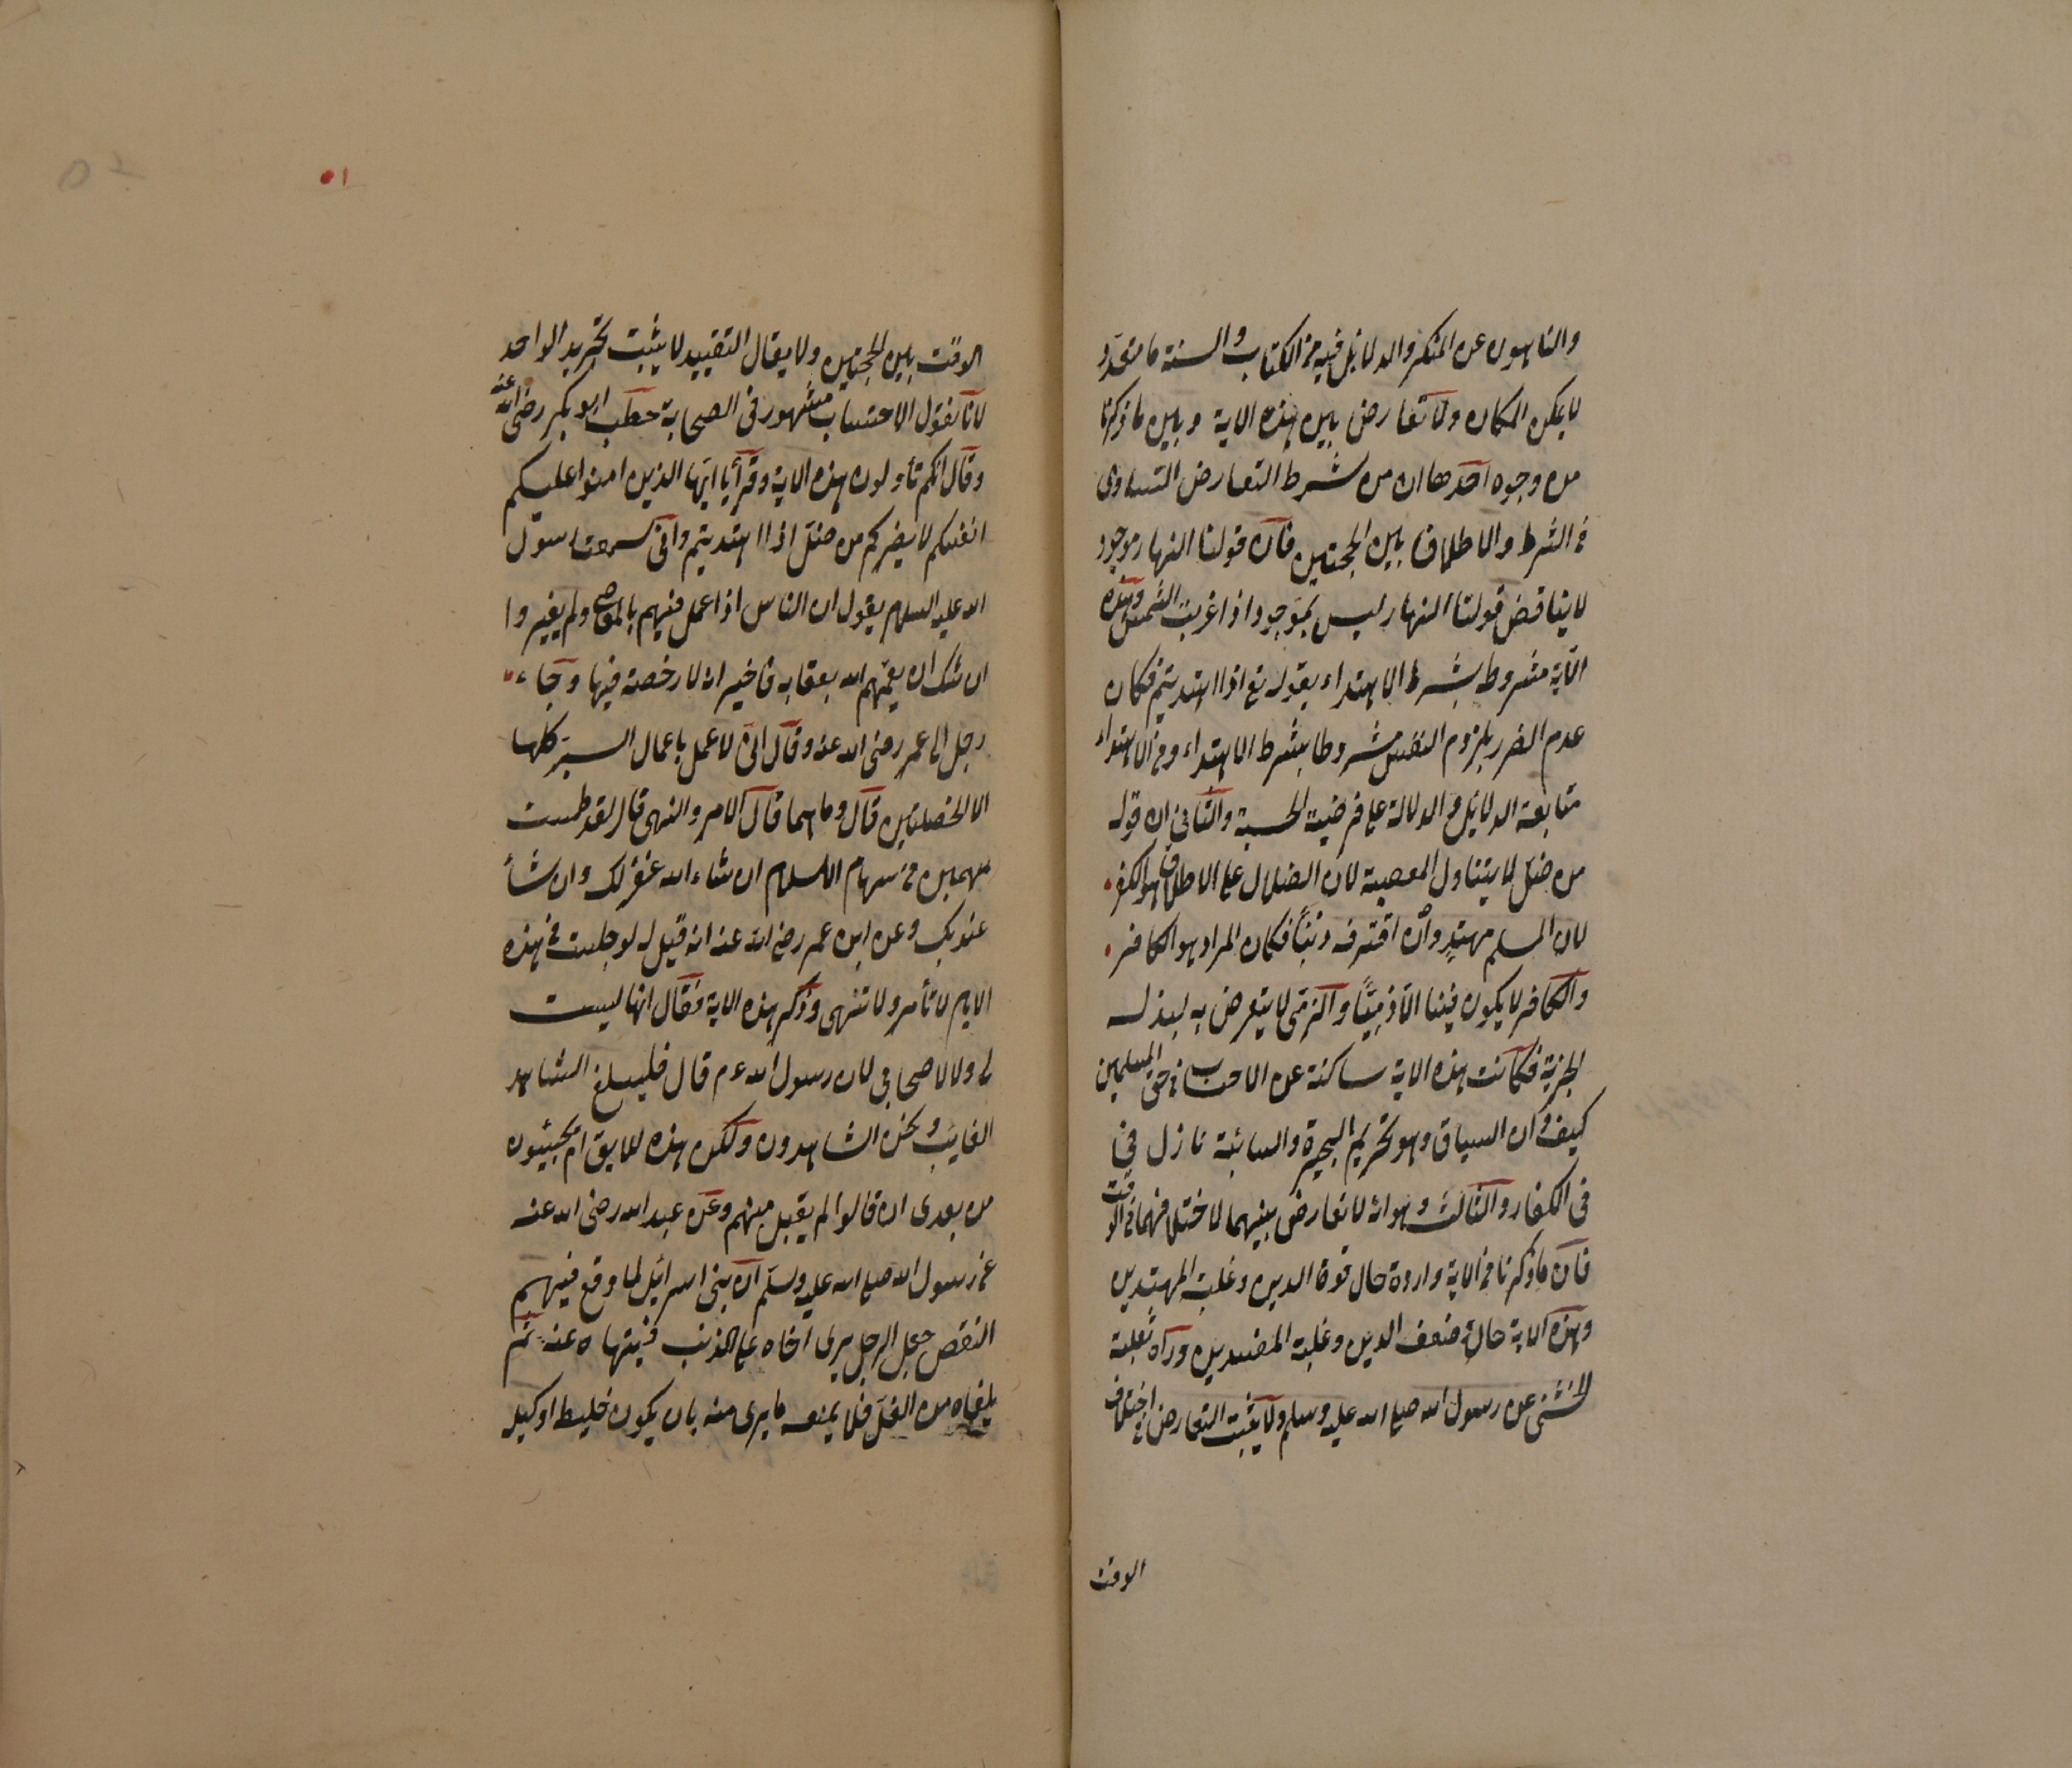 والناهون عن المنكر والدلائل فيه من الكتاب والسنة ما متعدد
لا يمكن المكان ولا تعارض بين هذه الاية وبين ما ذكرنا
من وجوه احدها ان من شرط التعارض التساوى
فى الشرط والاطلاق بين الحجتين فان قولنا النهار موجود
لا يناقض قولنا النهار ليس بموجود اذا غربت الشمس وهذه
الآية مشروط بشرط الاهتداء بقوله تع اذا اهتديتم فكان
عدم الضرر بلزوم النفس مشروطا بشرط الاهتداء ومن الاهتداء
متابعة الدلائل والدلالة على فرضية الحسبة والثانى ان قوله
من ضل لا يتناول المعصية لان الضلال على الاطلاق هو الكفر
لان المسلم مهتدٍ وان اقترف ذنباً فكان المراد هو الكافر
والكافر لا يكون فينا الا ذمّيّاً والذمى لا يتعرض به لبذله
الجزية فكانت هذه الاية ساكنة عن الاحتساب فى حق المسلمين
كيف وان السياق وهو تحريم البحيرة والسائبة نازل فى
فى الكفار والثالث وهو انه لا تعارض بينهما لاختلافهما فى الوقت
فان ما ذكرنا من الاية واردة حال قوة الدين وغلبة المهتدين
وهذه الاية حالة ضعف الدين وغلبة المفسدين ورآه ثعلبة
الخشنى عن رسول الله صلى الله عليه وسلم ولا يثبت التعارض فى اختلاف
الوقت
الوقت بين الحجتين ولا يقال التقييد لا يثبت بخبر الواحد
لانا نقول الاحتساب مشهور فى الصحابة خطب ابو بكر رضى الله عنه
وقال انكم تأولون هذه الاية وقرأ يا ايها الذين امنوا عليكم
انفسكم لا يضركم من ضل اذا اهتديتم وانى سمعت رسول
الله عليه السلام يقول ان الناس اذا عمل فيهم بالمعاصى ولم يغيروا
اوشك ان يعمّهم الله بعقابه فاخبر انه لا رخصة فيها وجاء
رجل الى عمر رضى الله عنه وقال انى لاعمل باعمال البر كلها
الا الخصلتين قال وما هما قال الامر والنهى قال لقد طمست
سهمين من سهام الاسلام ان شاء الله غفر لك وان شاء
عذبك وعن ابن عمر رضى الله عنه انه قيل له لو جلست فى هذه
الايام لا تأمر ولا تنهى وذكر هذه الاية فقال انها ليست
لى ولا لاصحابى لان رسول الله عم قال فليبلغ الشاهد
الغائب ونحن الشاهدون ولكن هذه لاقوام يجيئون
من بعدى ان قالوا لم يقبل منهم وعن عبد الله رضى الله عنه
عن رسول الله صلى الله عليه وسلم ان بنى اسرائيل لما وقع فيهم
النقص جعل الرجل يرى اخاه على الذنب فينهاه عنه ثم
يلقاه من الغد فلا يمنعه ما يرى منه بان يكون خليطه او كيله